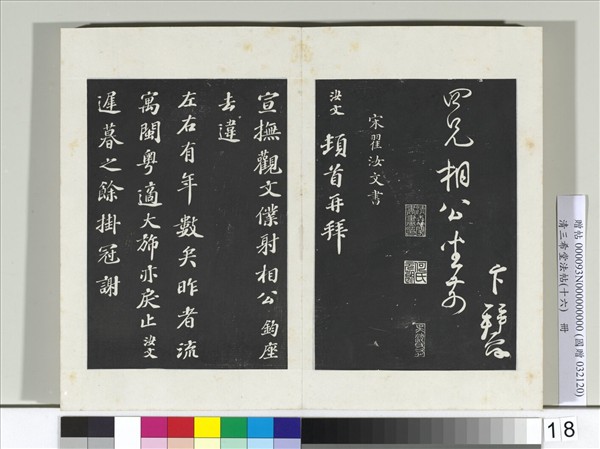 四兄相公坐前
卞䪺
宋翟汝文書
汝文頓首再拜
宣撫觀文僕射相公鈞座
去違
左右有年數矣昨者流
寓閩粵適大旆亦戾止汝文
遲暮之餘掛冠謝
贈帖 000093N000000000 (國贈 032120)
清三希堂法帖(十六) 冊
18